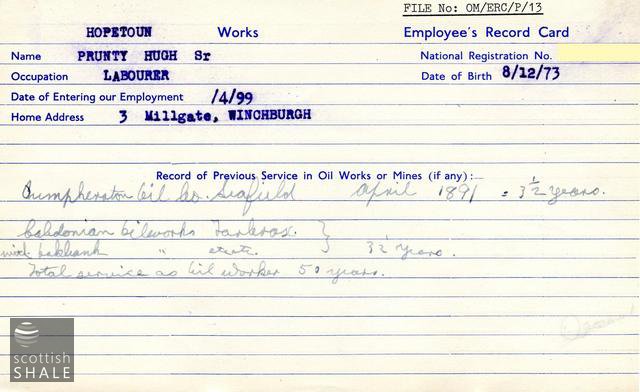 FILE No: OM/ERC/P/13
HOPETOUN Works Employee's Record Card
Name PRUNTY HUGH Sr National Registration No.
Occupation LABOURER Date of Birth 8/12/73
Date of Entering our Employment /4/99
Home Address 3 Millgate, WINCHBURGH
Record of Previous Service in Oil Works or Mines (if any):—
Pumpherston Oil Co. Seafield April 1891 = 3½ years.
Caledonian Oilworks Tarbrax. }
with Oakbank " etc. } 3½ years.
Total service as Oil Worker 50 years.
scottish
SHALE